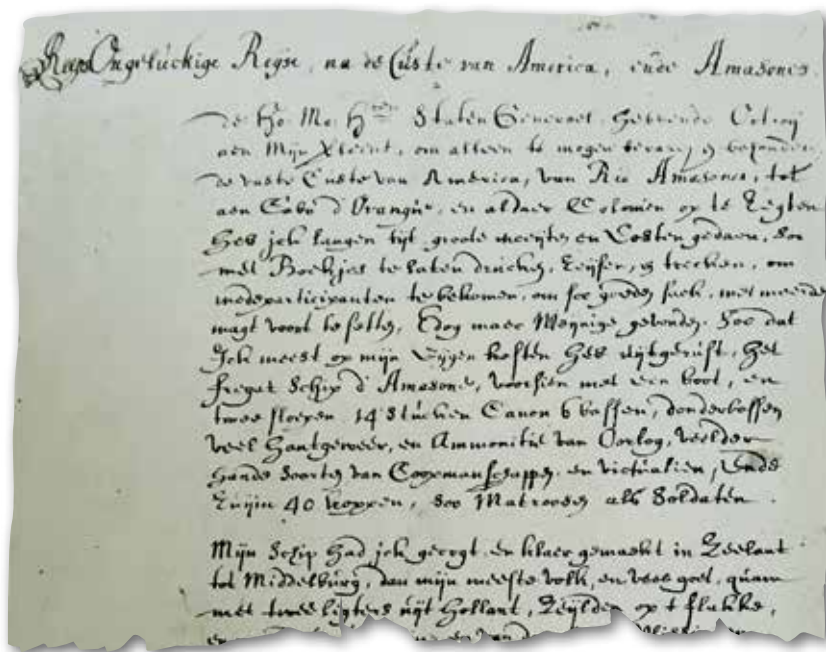 Ongelúckige Reyse, na de Cúste van America, ende Amasones
de Ho: Mo: Heeren Staten Generael hebbende Octroy
aen Mijn verleent, om alleen te mogen
de vaste Custe van America, van Rio Amasones, tot
aen Cabo d'Orangie, en aldaer Colonien op te
heb ick langen tijt groote moeijten en Costen gedaen, Soo
met Boekjes te laten drucken, Reysen, en trecken, om
medeparticipanten te bekomen, om soo goeden saek, met meerder
magt voort te setten, Edog maer Weijnige gevonden. Soo dat
Ick meest op mijn Eygen kosten heb uijtgerúst, het
fregat Schip d'Amasone, voorsien met een boot, en
twee sloepen 14 Stúcken Canon 6 bassen, donderbossen
veel hantgeweer, en Ammonitie van Oorlog, veelder
hande Soorten van Coopmanschappen en victualien, Ende
Ruijm 40 koppen, Soo Matroosen als Soldaten.
Mijn Schip had ick en klaer gemaekt in Zeelant
tot Middelbúrg, dan mijn meeste volk, en veel goet, quam
met twee ligters uijt Hollant, Zeijlden op 't slakke,